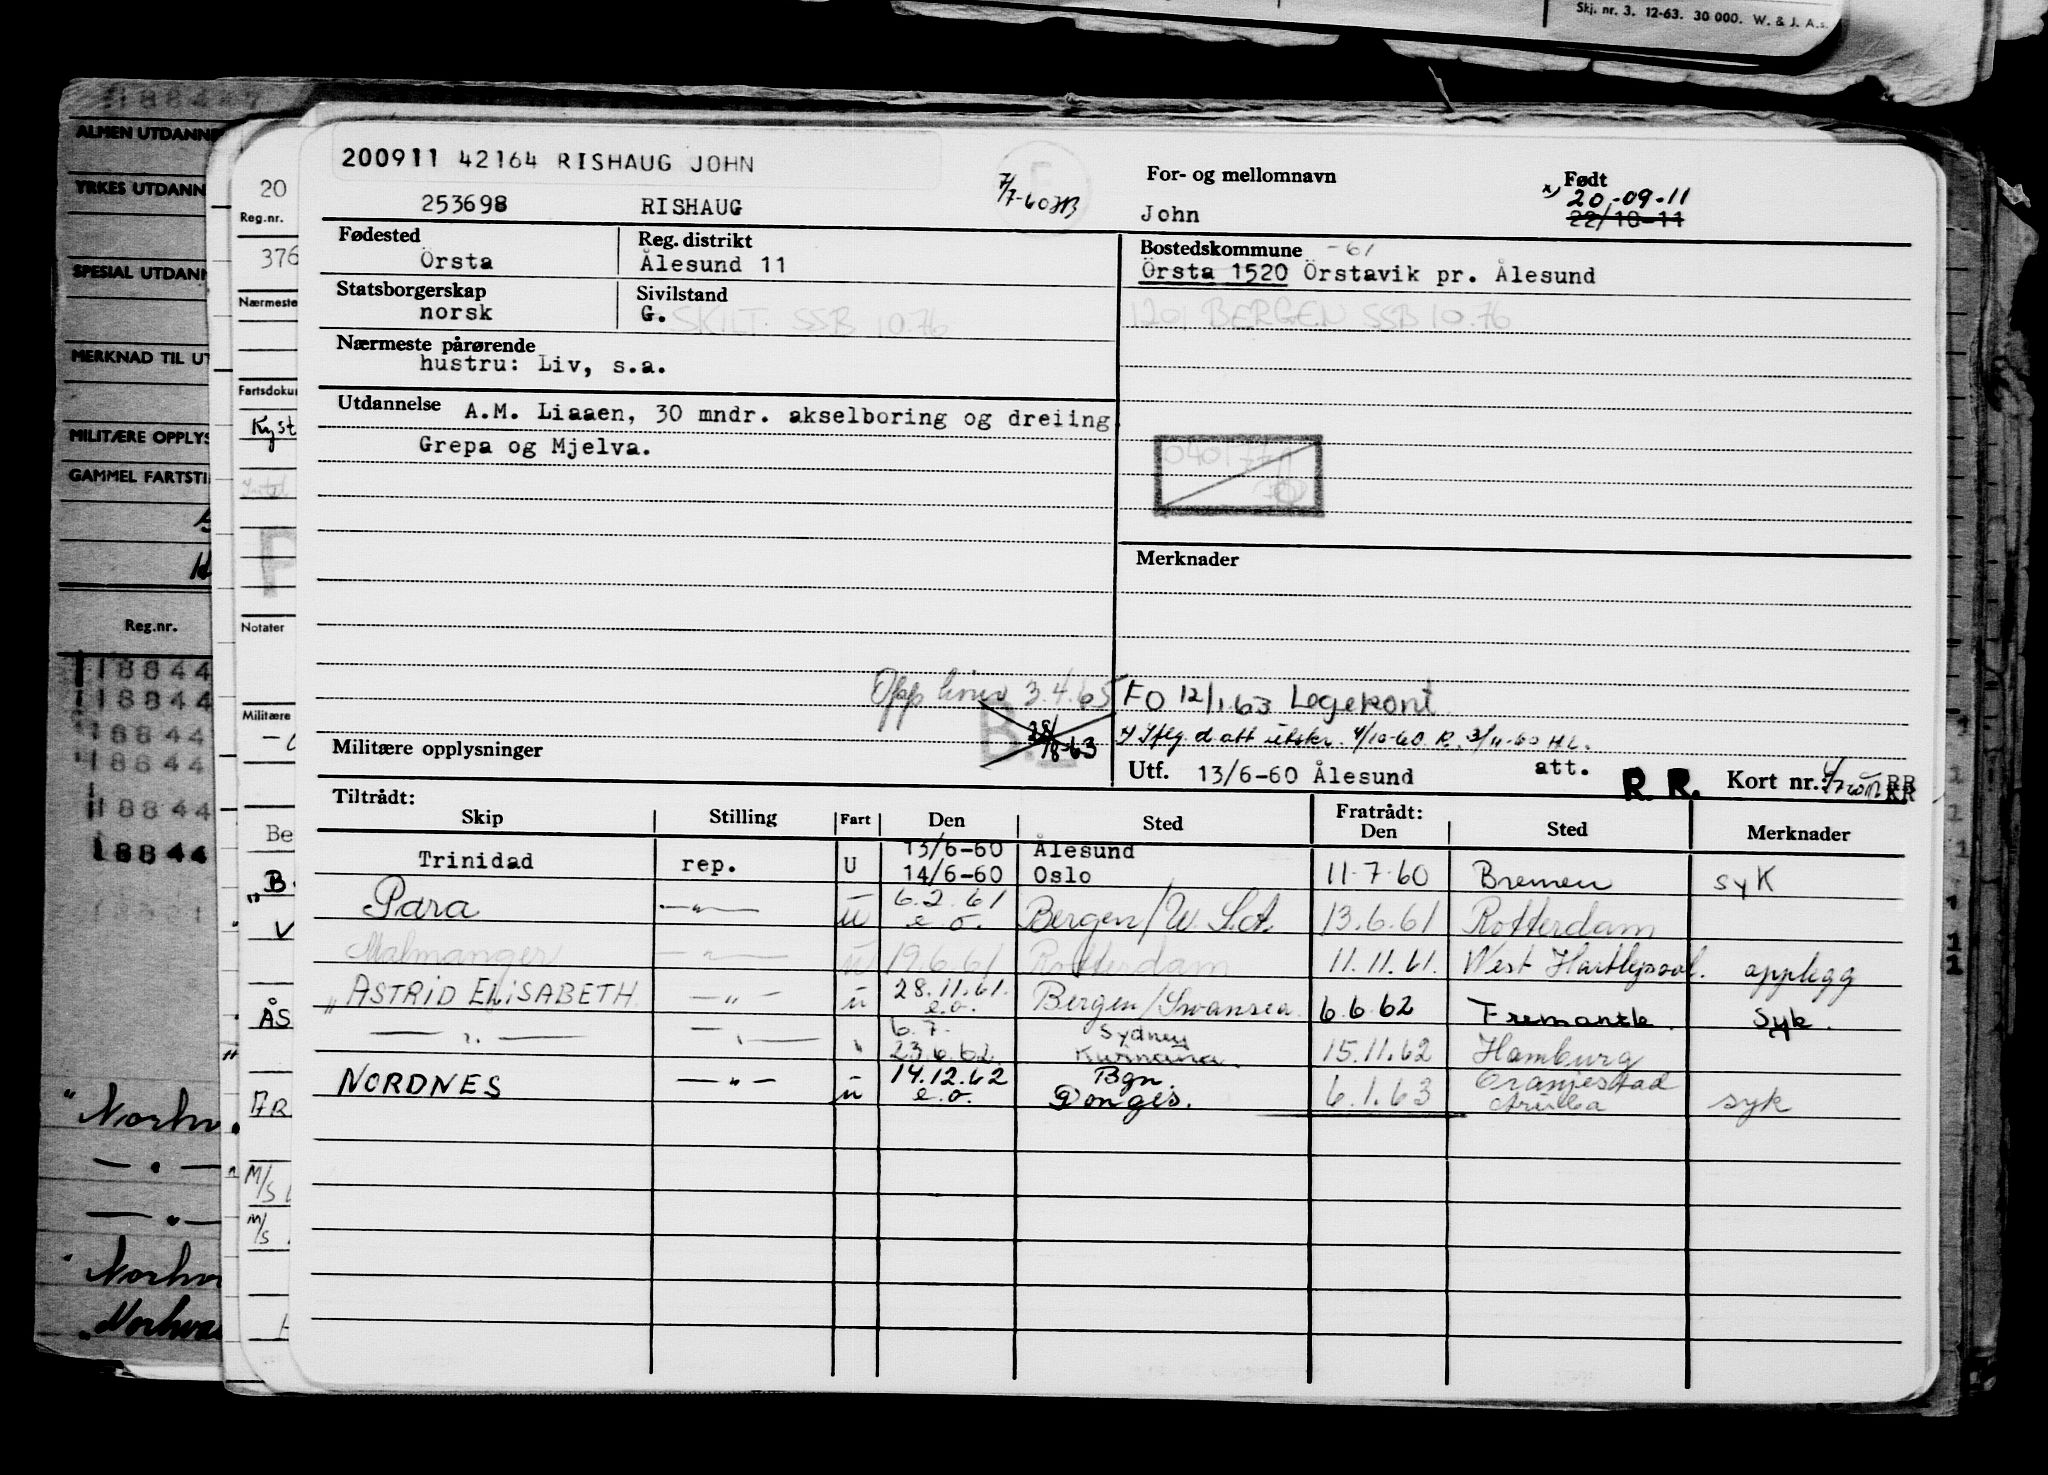 Skj. nr. 3. 12-63. 30 000. W. & J. A.s.
ALMEN UTDANNE
YRKES UTDANN
SPESIAL UTDAN
MERKNAD TIL UT
MILITÆRE OPPLYS
GAMMEL FARTSTI
Reg.nr.
18844
18844
18844
18844
18844
18844
20
Reg.nr.
376
Nærmeste
Fartsdokur
Kyst
Notater
Militære
Be
ÅS
M/S
M/S
200911 42164 RISHAUG JOHN
253698 RISHAUG
7/7-60 HB
For- og mellomnavn
John
Født
x) 20.-09-11
22/10-11
Fødested
Örsta
Reg. distrikt
Ålesund 11
Bostedskommune -61
Örsta 1520 Örstavik pr. Ålesund
Statsborgerskap
norsk
Sivilstand
G.
SKILT SSB 10.76
1201 BERGEN SSB 10.76
Nærmeste pårørende
hustru: Liv, s.a.
Utdannelse A.M. Liaaen, 30 mndr. akselboring og dreiing
Grepa og Mjelva.
Merknader
3.4.65
FO 12/1.63 Legekont.
28/8-63
Militære opplysninger
Utf. 13/6-60 Ålesund
att.
R. R.
Kort nr.: RR
Tiltrådt:
Skip Stilling Fart Den Sted Fratrådt: Den Sted Merknader
Trinidad rep. U 13/6-60 Ålesund
14/6-60 Oslo 11-7-60 Bremen syk
Para —"— u 6.2.61 e.o. Bergen/W. S.A. 13.6.61 Rotterdam
Malmanger —"— u 19.6.61 Rotterdam 11.11.61. West Hartlepool. opplegg
" ASTRID ELISABETH —"— u 28.11.61. e.o. Bergen/Swansea. 6.6.62 Fremantle. Syk.
—"— —"— " 6.7. Sydney
23.6.62. Kwinana. 15.11.62 Hamburg
NORDNES —"— u 14.12.62 e.o. Bgn. Donges. 6.1.63 Oranjestad Aruba syk